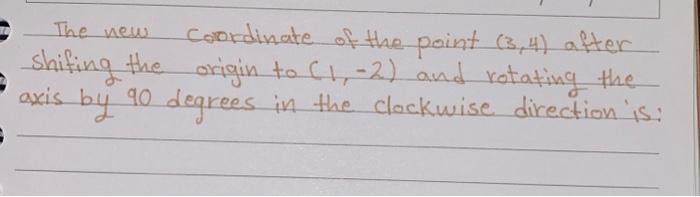 The new coordinate of the point (3,4) after
shifing the origin to (1,-2) and rotating the
axis by 90 degrees in the clockwise direction is: